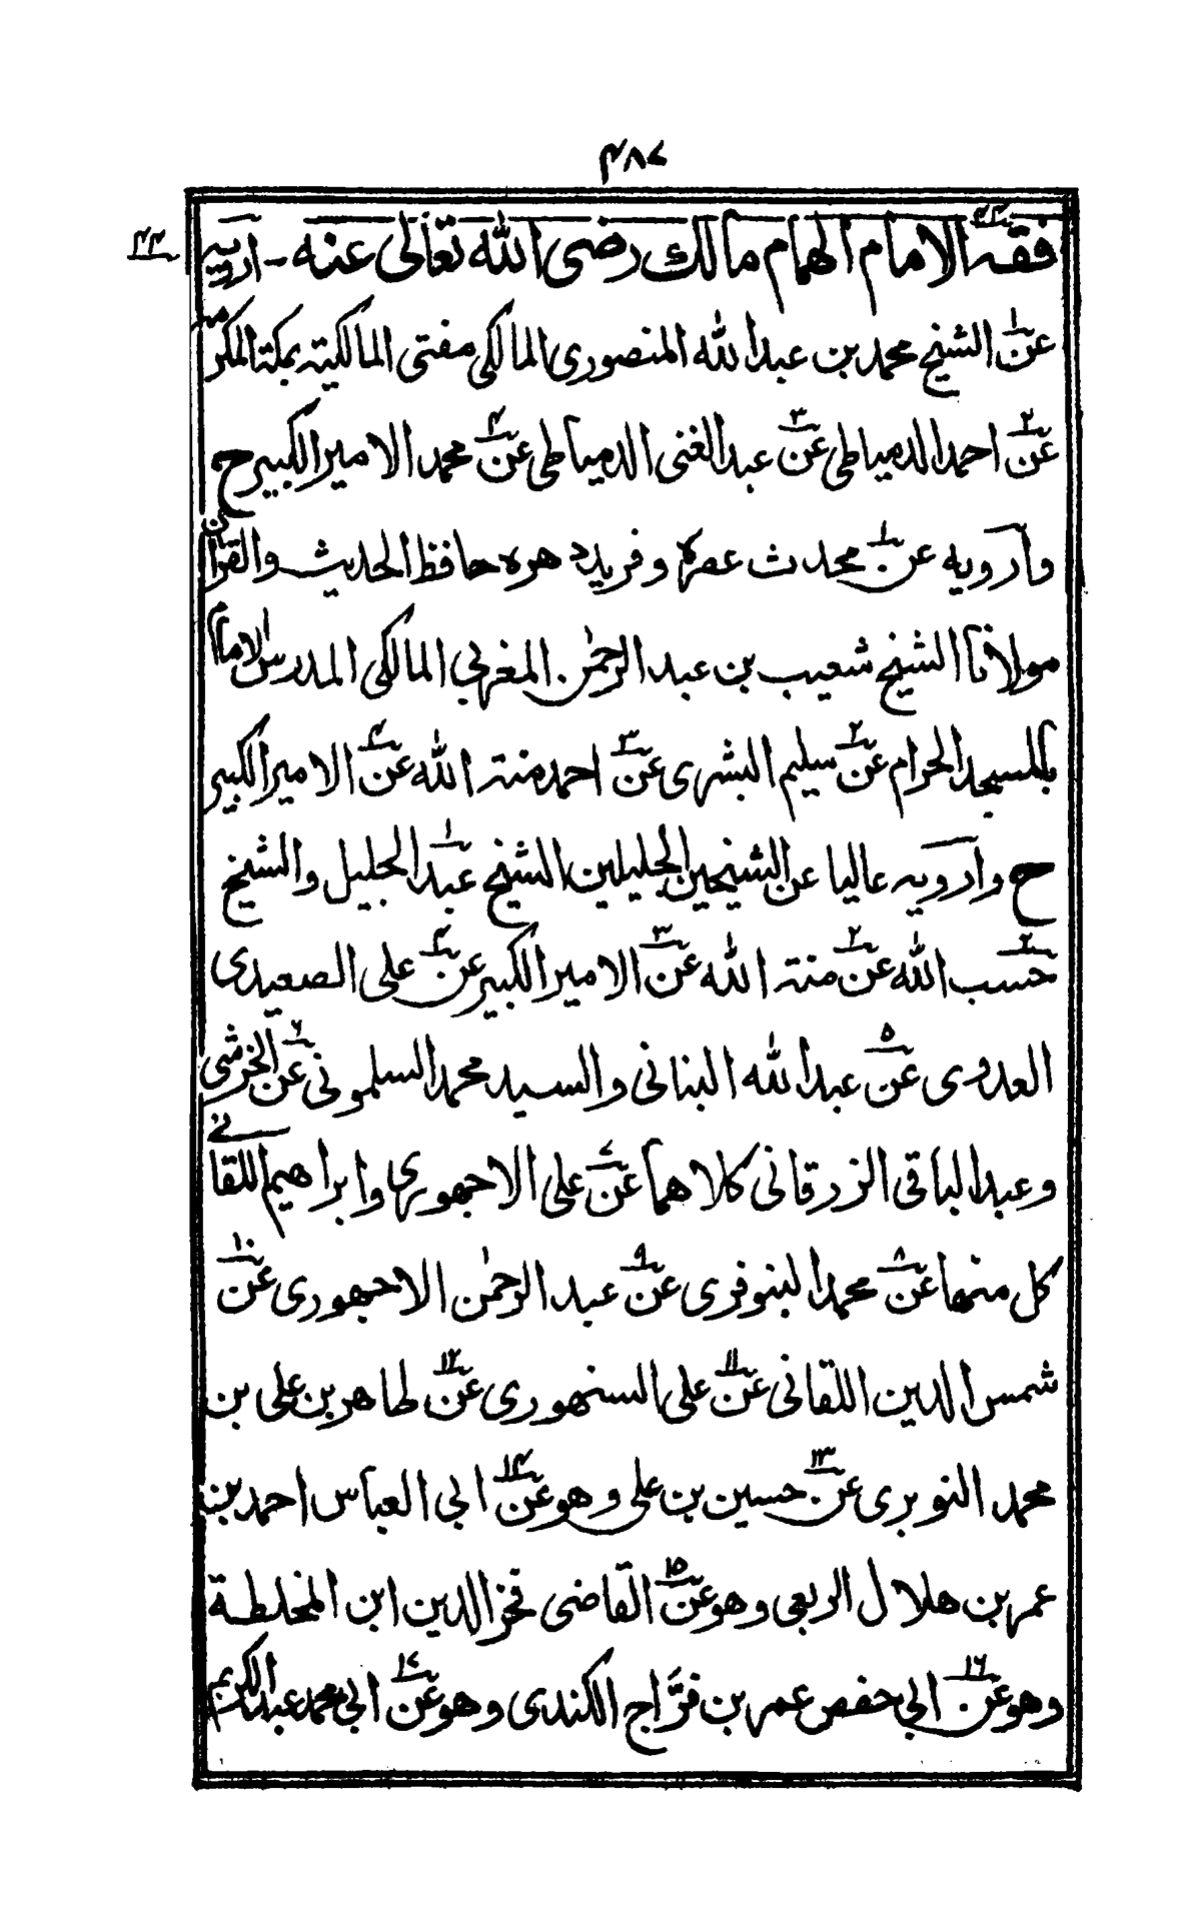 ۴۸۷
۲۳
فقہ الامام الهمام مالك رضی اللہ تعالیٰ عنہ - ارویہ
عن۱ الشیخ محمد بن عبداللہ المنصوری المالکی مفتی المالکیتہ بمکتہ المکرمہ
عن۲ احمد الدمیاطی عن۳ عبدالغنی الدمیاطی عن۴ محمد الامیر الکبیر ح
وارویہ عن۱ محدث عصرہ وفرید دهره حافظ الحدیث والقرآن
مولانا الشیخ شعیب بن عبد الرحمٰن المغربی المالکی المدرس الامام
بالمسجد الحرام عن۲ سلیم البشری عن۳ احمد منتہ اللہ عن۴ الامیر الکبیر
ح وارویہ عالیا عن الشیخین الجلیلین الشیخ عبد۱ الجلیل والشیخ
حسب۲ اللہ عن۲ منتہ اللہ عن۳ الامیر الکبیر عن۴ علی الصعیدی
العدوی عن۵ عبداللہ البنانی والسید محمد السلمونی عن۶ الخرشی
وعبد الباقی الزرقانی کلاهما عن۷ علی الاجهوری وابراهیم اللقانی
کل منهما عن۸ محمد البنوفری عن۹ عبد الرحمٰن الاجهوری عن۱۰
شمس الدین اللقانی عن۱۱ علی السنهوری عن۱۲ طاهر بن علی بن
محمد النویری عن۱۳ حسین بن علی وهو عن۱۴ ابی العباس احمد بن
عمر بن هلال الربعی وهو عن۱۵ القاضی فخر الدین ابن المخلطة
وهو عن۱۶ ابی حفص عمر بن فرّاج الکندی وهو عن۱۷ ابی محمد عبد الکریم